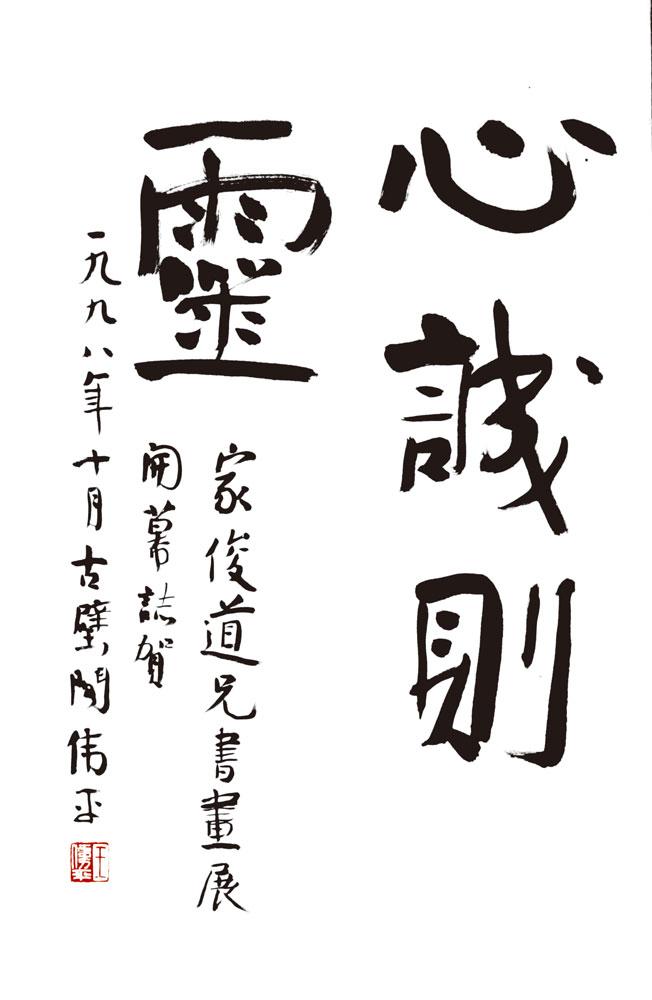 心誠則
靈
家俊道兄書畫展
開幕誌賀
一九九八年十月古伟平
王偉平